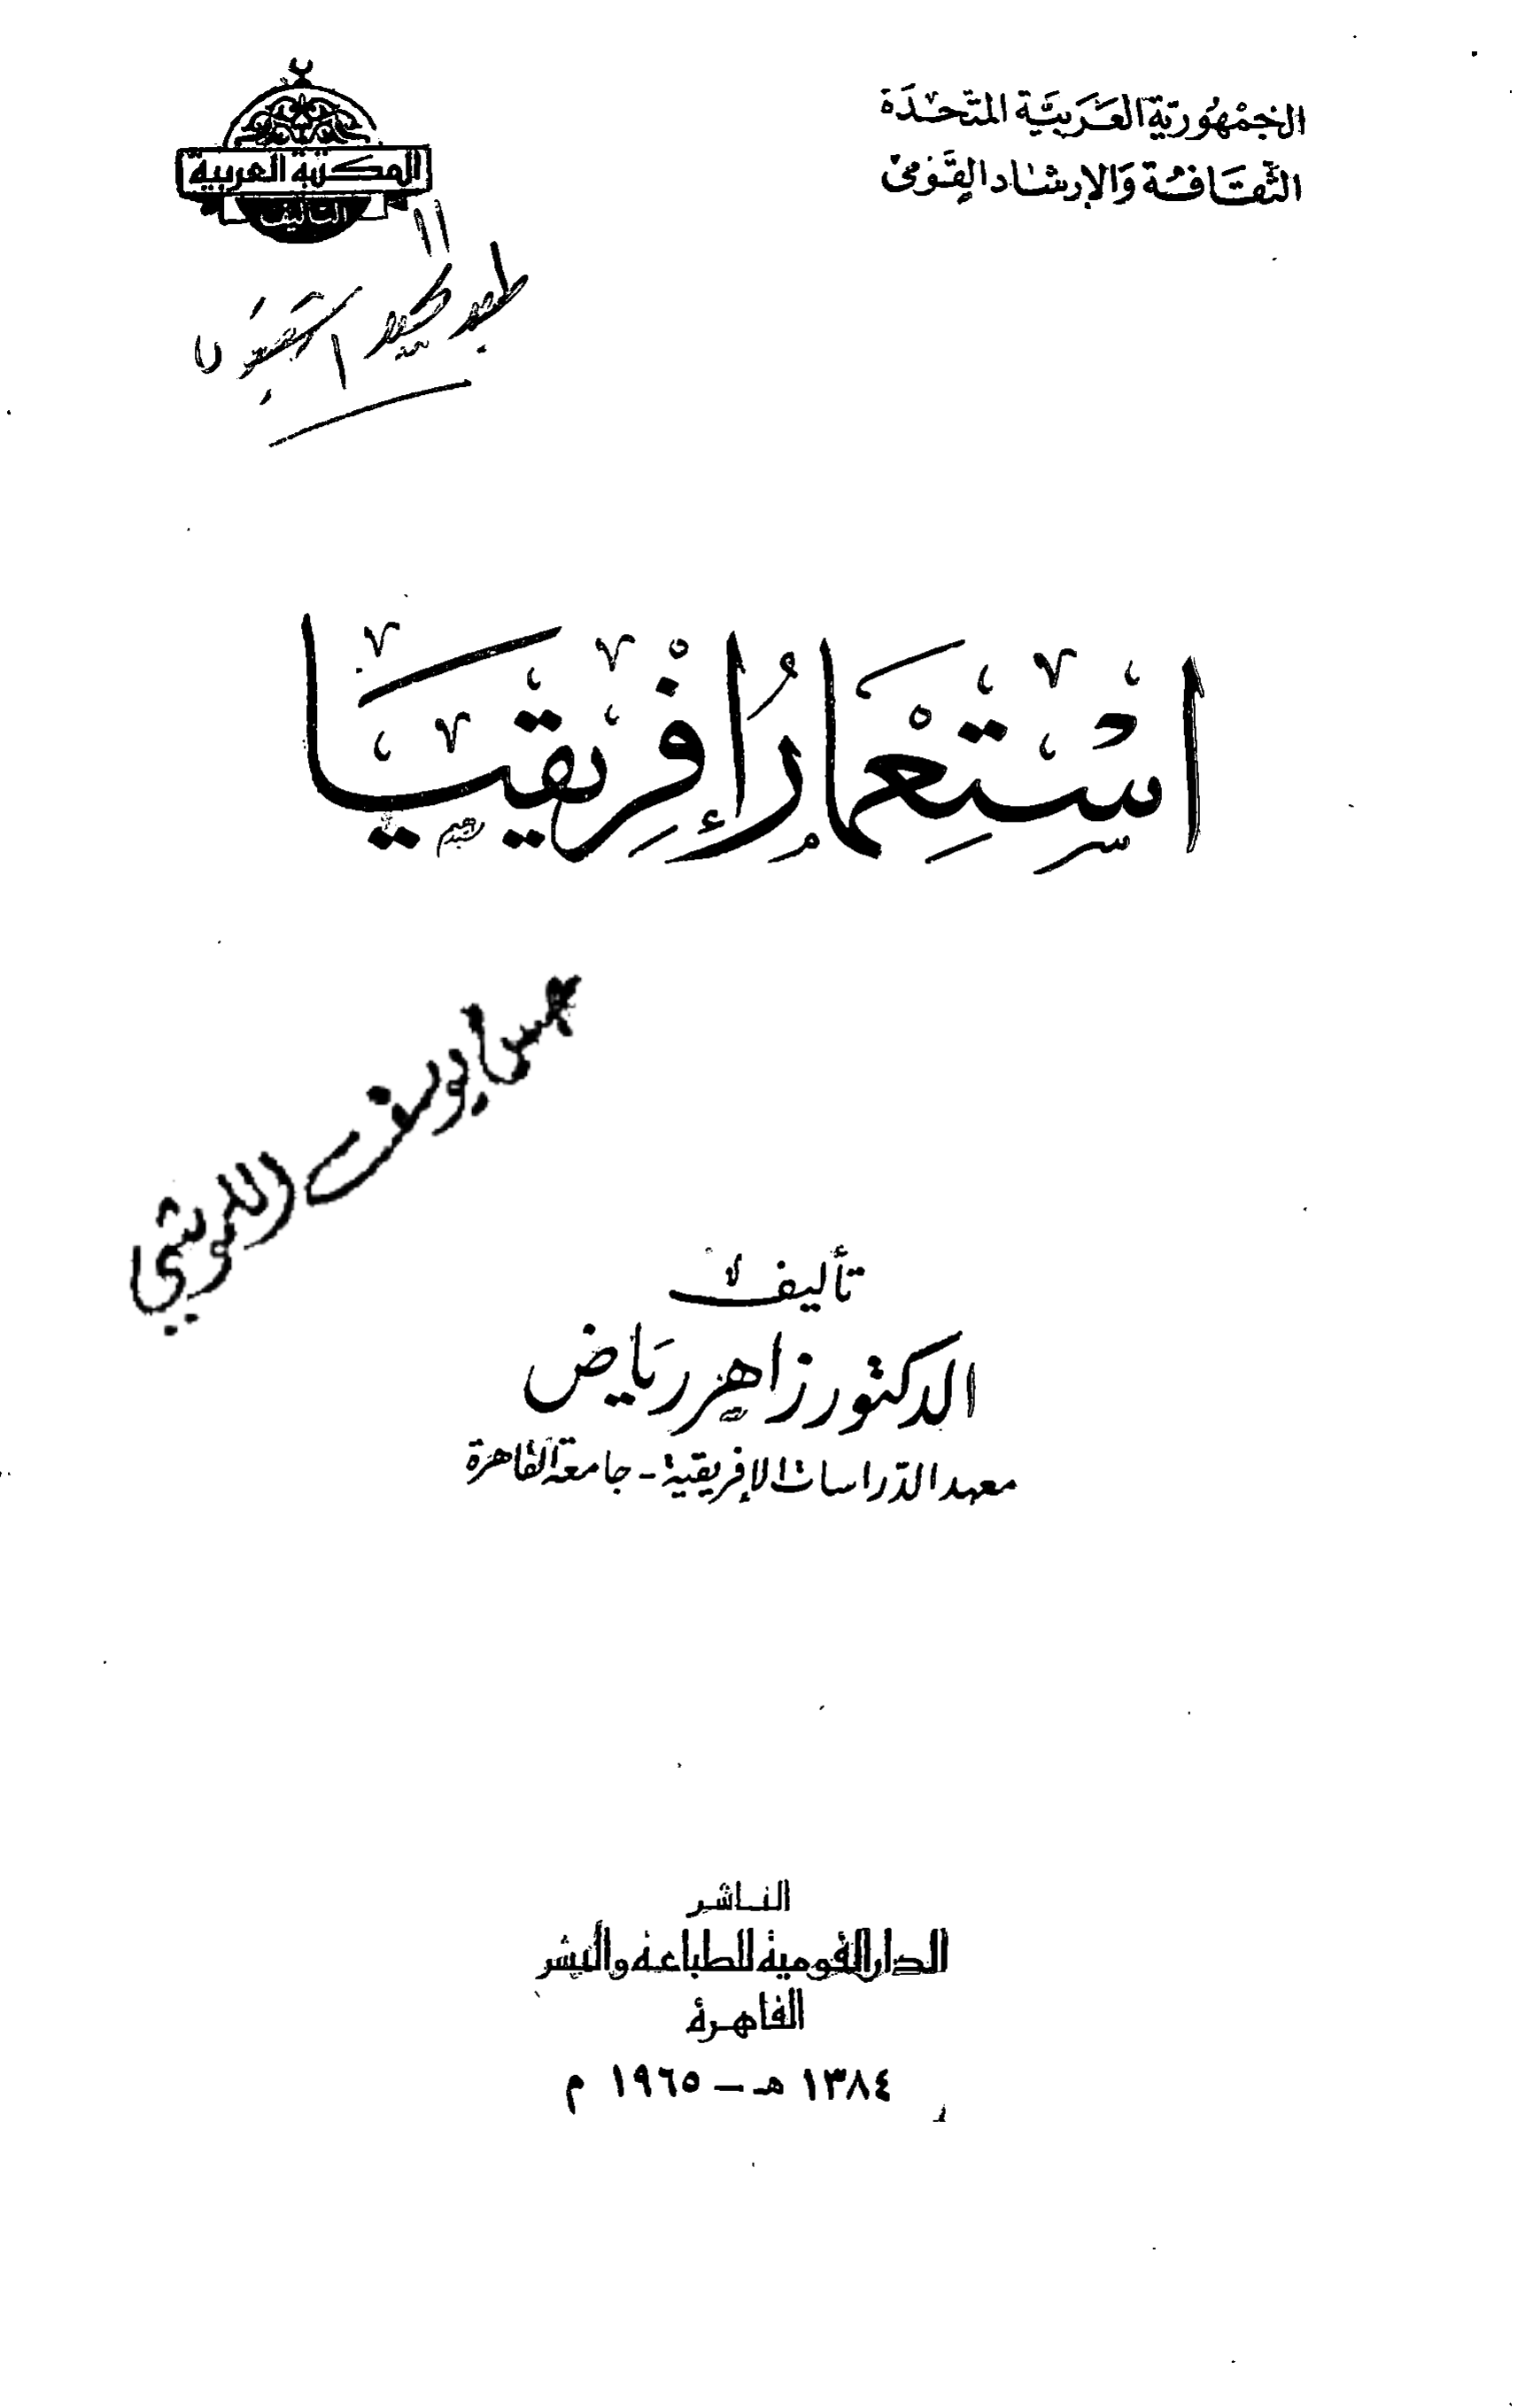 الجمهورية العربية المتحدة
الثقافة والإرشاد القومي
المكتبة العربية
التأليف
١١
استعمار إفريقيا
يوسف
تأليف
الدكتور زاهر رياض
معهد الدراسات الإفريقية - جامعة القاهرة
الناشر
الدار القومية للطباعة والنشر
القاهرة
١٣٨٤ هـ - ١٩٦٥ م